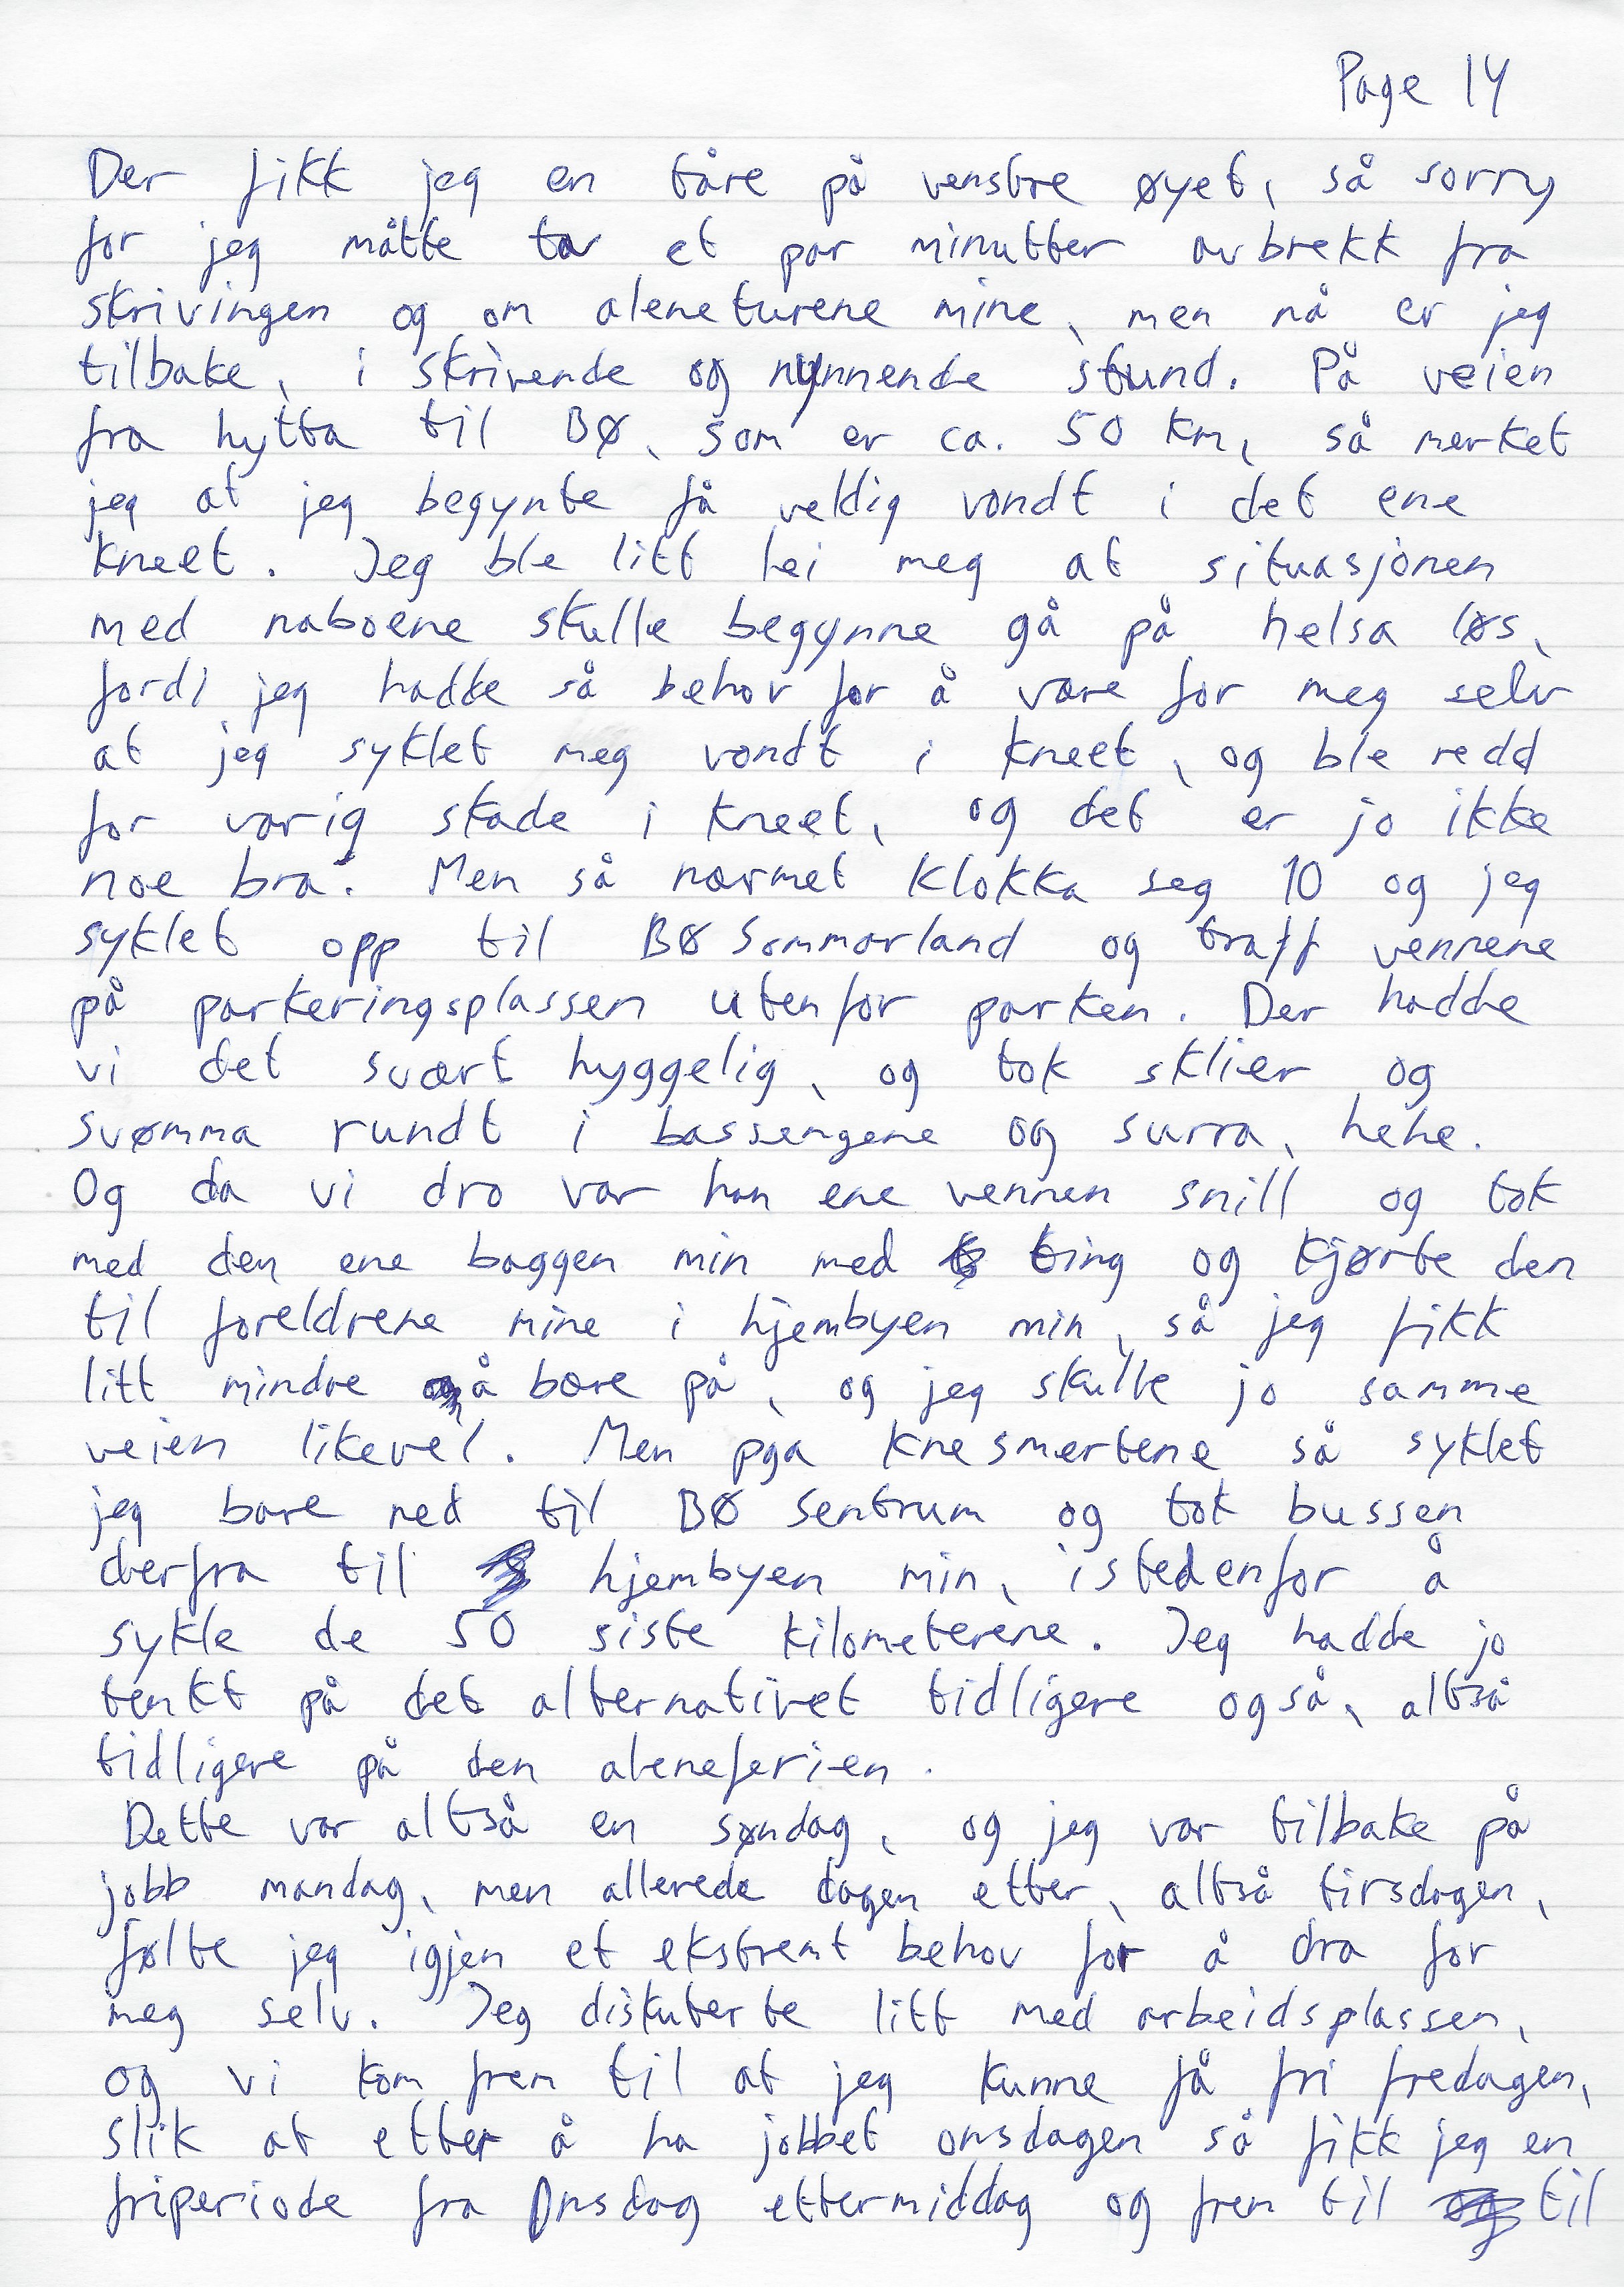 Page 14
Der fikk jeg en tåre på venstre øyet, så sorry
for jeg måtte ta et par minutter avbrekk fra
skrivingen og om aleneturene mine, men nå er jeg
tilbake, i skrivende og nynnende stund. På veien
fra hytta til Bø, som er ca. 50 km, så merket
jeg at jeg begynte få veldig vondt i det ene
kneet. Jeg ble litt lei meg at situasjonen
med naboene skulle begynne gå på helsa løs,
fordi jeg hadde så behov for å være for meg selv
at jeg syklet meg vondt i kneet, og ble redd
for varig skade i kneet, og det er jo ikke
noe bra. Men så nærmet klokka seg 10 og jeg
syklet opp til Bø Sommarland og traff vennene
på parkeringsplassen utenfor parken. Der hadde
vi det svært hyggelig, og tok sklier og
svømma rundt i bassengene og surra, hehe.
Og da vi dro var han ene vennen snill og tok
med den ene baggen min med ting og kjørte den
til foreldrene mine i hjembyen min, så jeg fikk
litt mindre å bære på, og jeg skulle jo samme
veien likevel. Men pga knesmertene så syklet
jeg bare ned til Bø sentrum og tok bussen
derfra til hjembyen min, istedenfor å
sykle de 50 siste kilometerene. Jeg hadde jo
tenkt på det alternativet tidligere også, altså
tidligere på den aleneferien.
Dette var altså en søndag, og jeg var tilbake på
jobb mandag, men allerede dagen etter, altså tirsdagen,
følte jeg igjen et ekstremt behov for å dra for
meg selv. Jeg diskuterte litt med arbeidsplassen,
og vi kom frem til at jeg kunne få fri fredagen,
slik at etter å ha jobbet onsdagen så fikk jeg en
friperiode fra Onsdag ettermiddag og frem til til